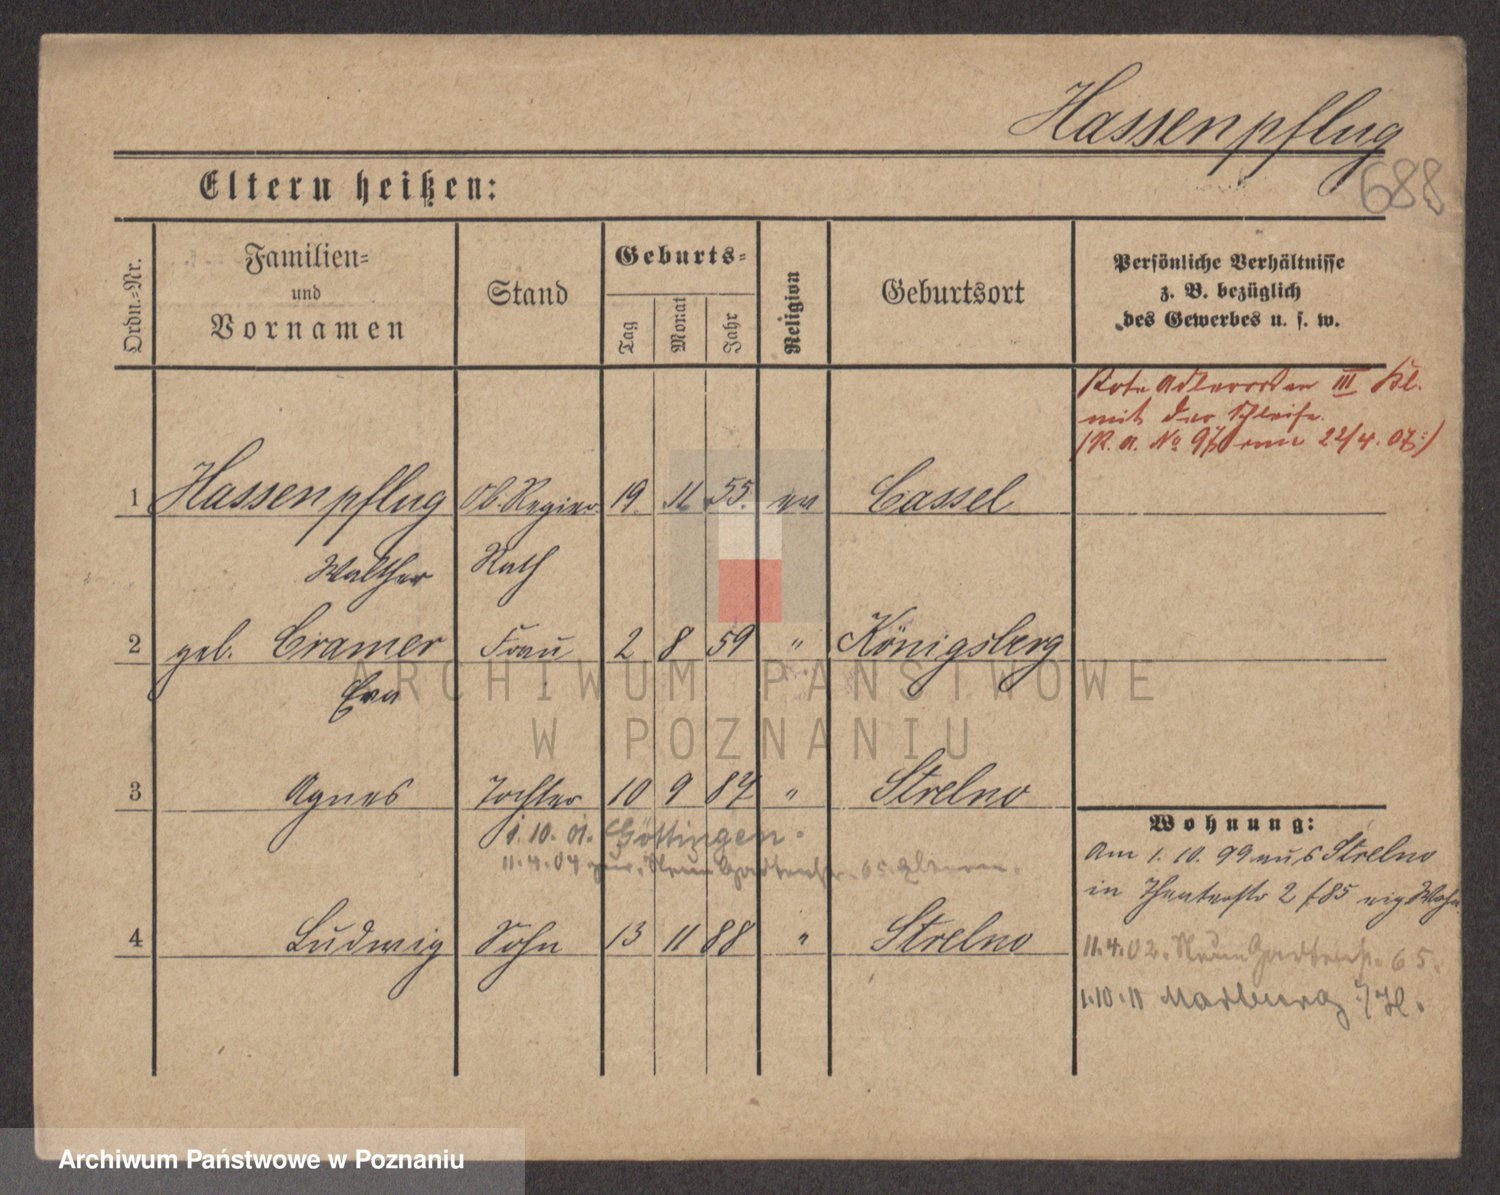 Hassenpflug
688
Eltern heißen:
Ordn.=Nr.
Familien=
und
Vornamen
Stand
Geburts=
Tag
Monat
Jahr
Religion
Geburtsort
Persönliche Verhältnisse
z. B. bezüglich
des Gewerbes u. s. w.
Rote Adlerorden III Kl.
mit der Schleife.
(R. a. No 97 vom 22/4. 07.)
1 Hassenpflug Ob. Regier. 19. 11. 55. ev Cassel
Walther Rath
2 geb. Cramer Frau 2 8 59 " Königsberg
Eva
3 Agnes Tochter 10 9 87 " Strelno
1. 10. 01. Göttingen.
11. 4. 04 zur. Neue Gartenstr. 65. Eltern.
4 Ludwig Sohn 13 11 88 " Strelno
Wohnung:
Am 1. 10. 99 aus Strelno
in Theaterstr 2 f. 85 eig Wohn.
11. 4. 02. Neue Gartenstr. 65.
1. 10. 11 Marburg /H.
ARCHIWUM PAŃSTWOWE
W POZNANIU
Archiwum Państwowe w Poznaniu